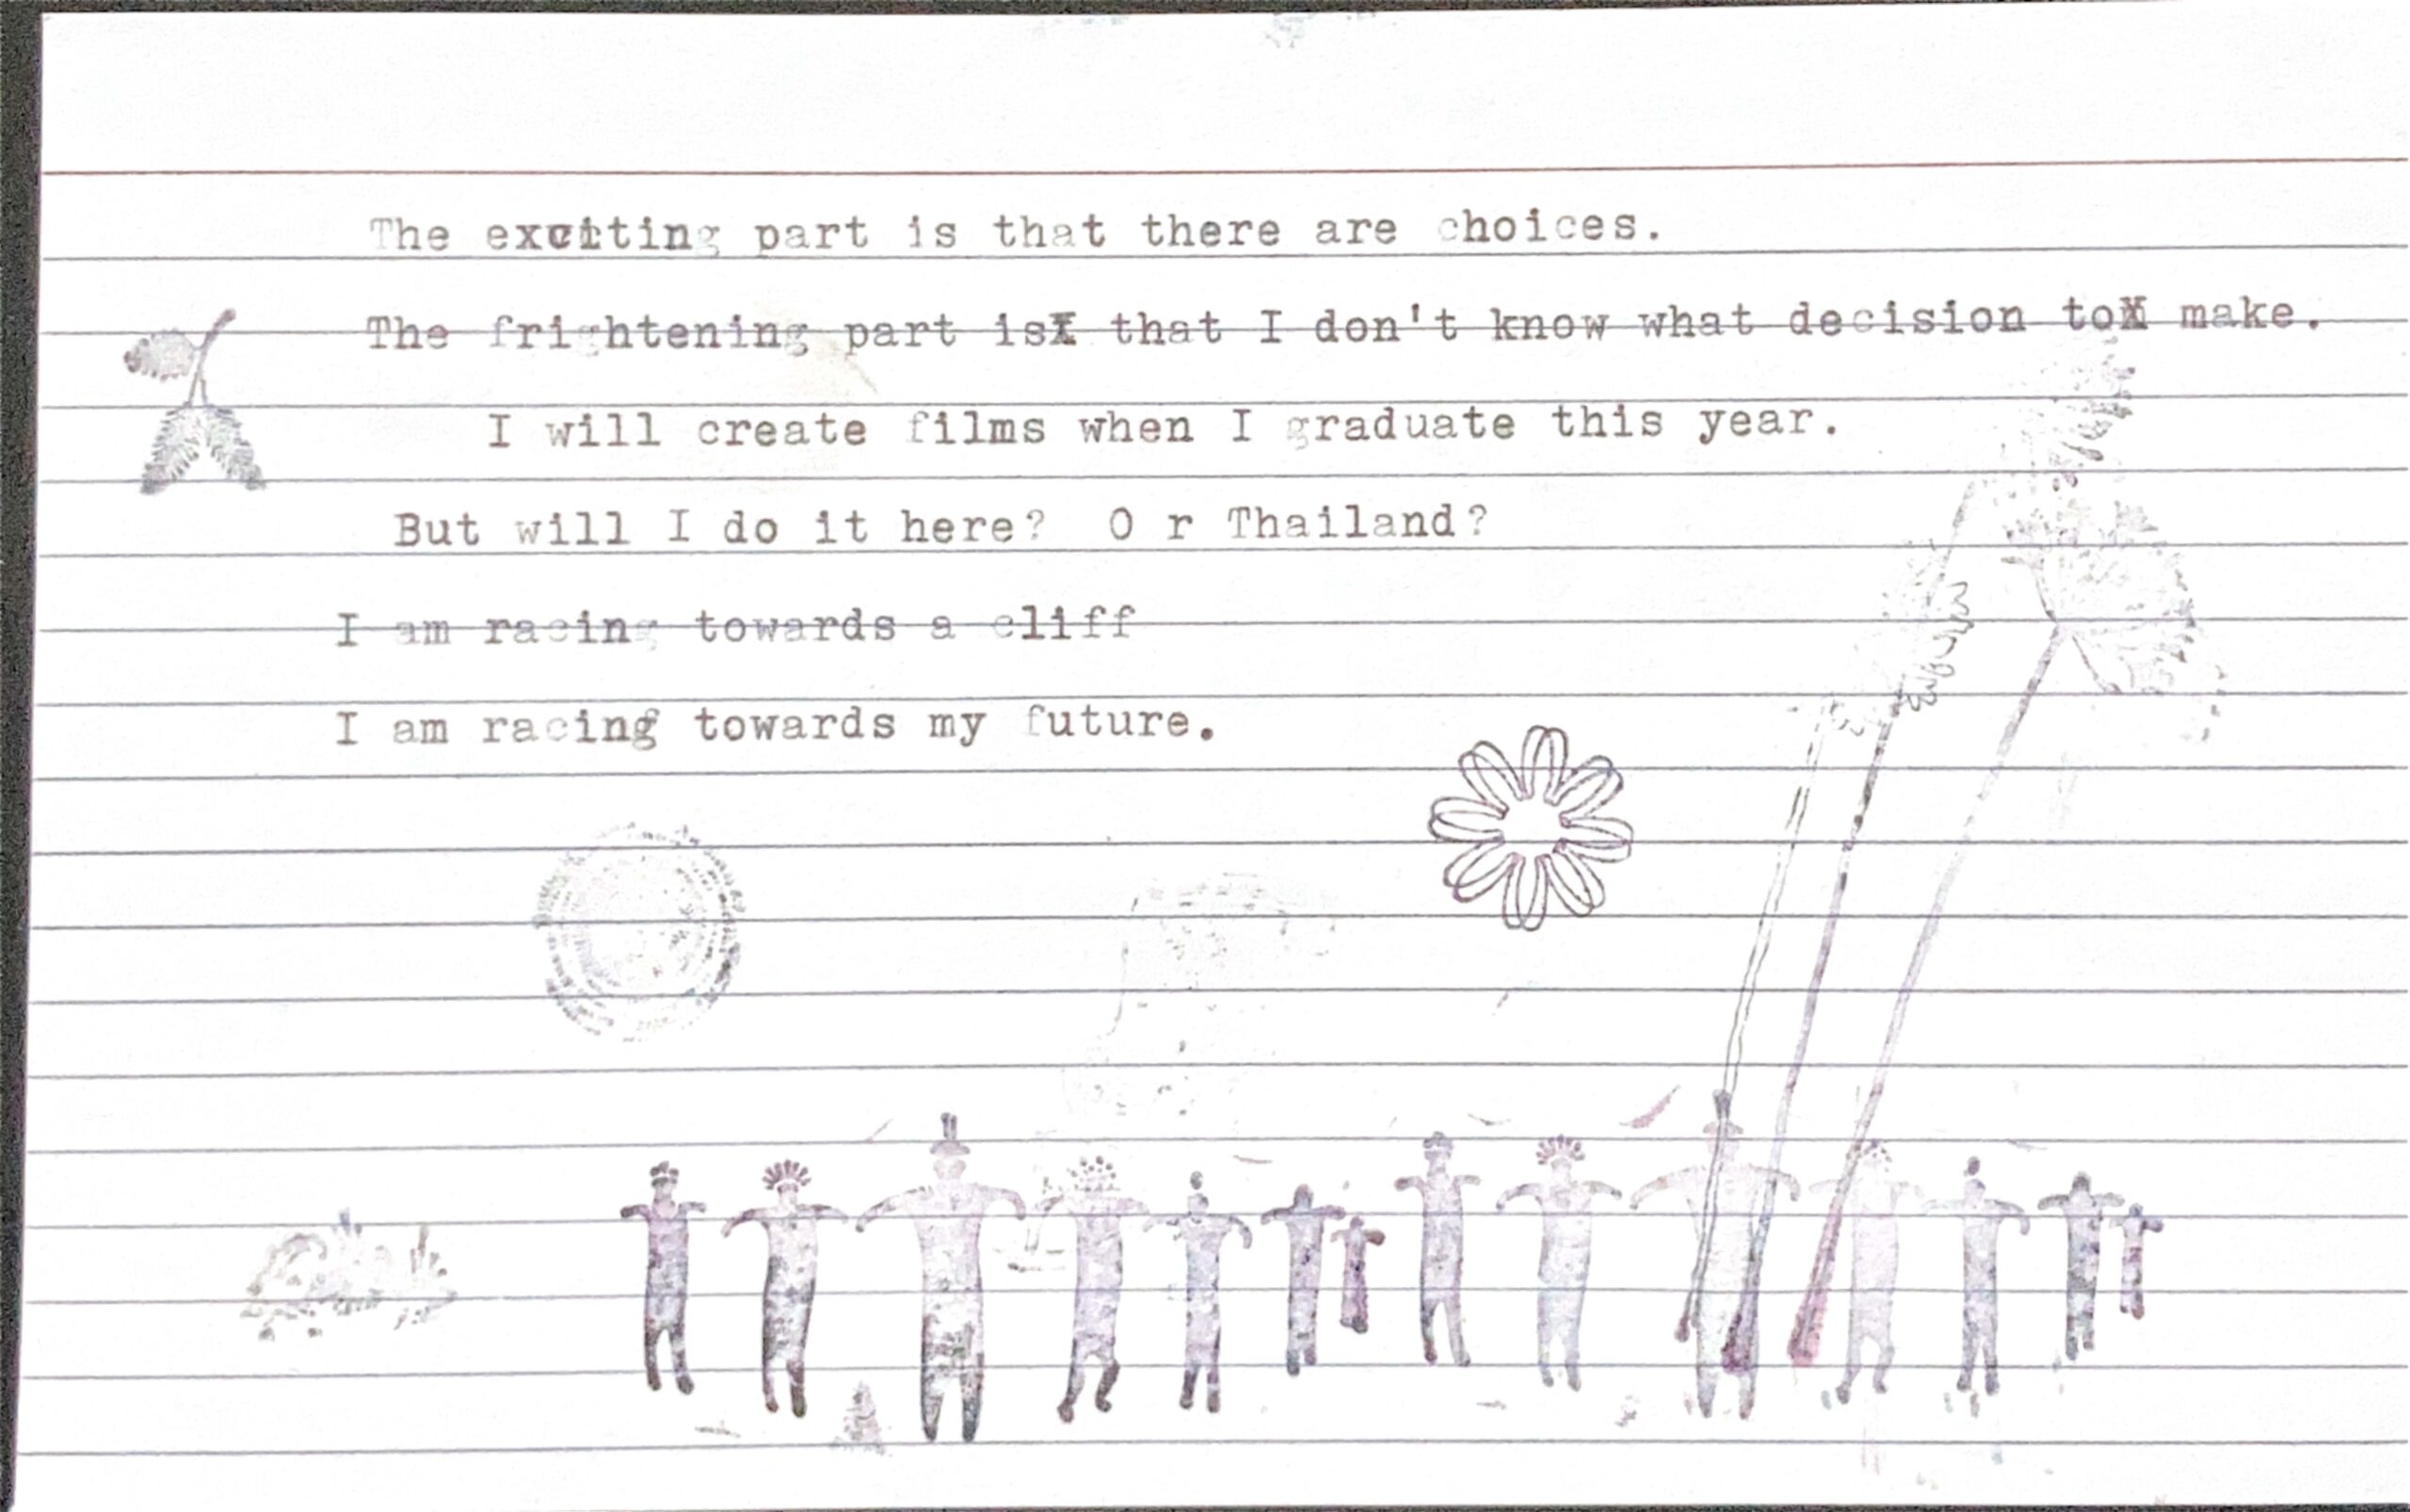 The exciting part is that there are choices.
The frightening part is that I don't know what decision to make.
I will create films when I graduate this year.
But will I do it here? O r Thailand?
I am racing towards a cliff
I am racing towards my future.